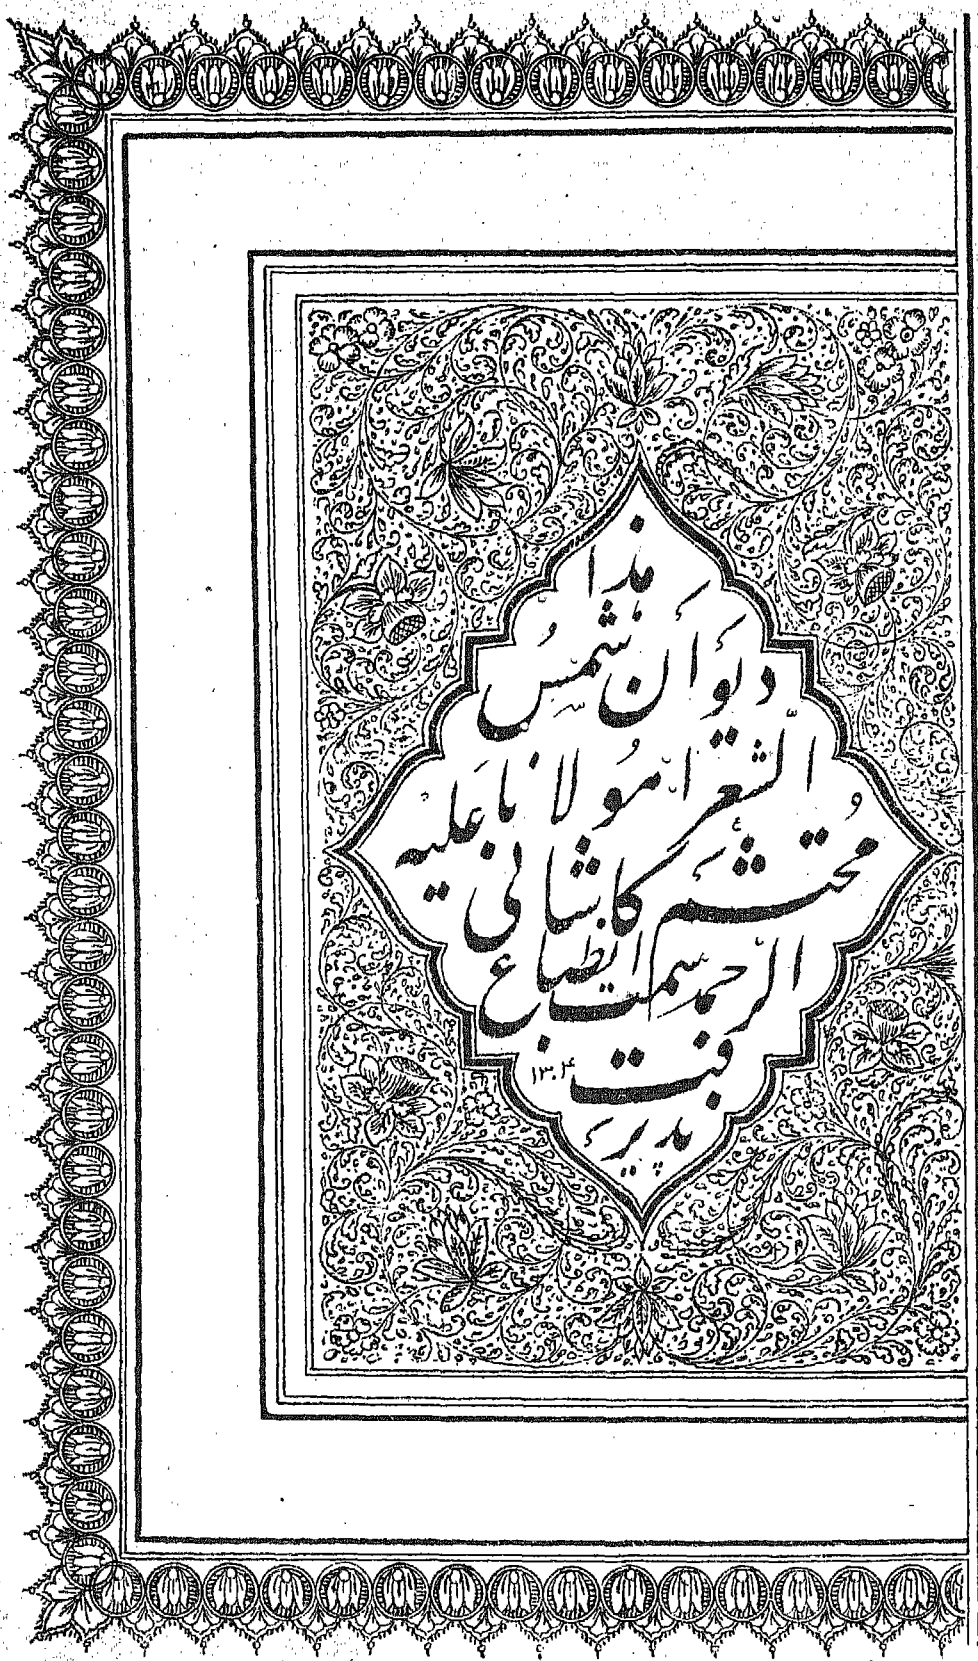 هذا
دیوان شمس
الشعرا مولانا علیه
محتشم کاشانی
الرحمه سمت انطباع
پذیرفت
۱۳۰۴